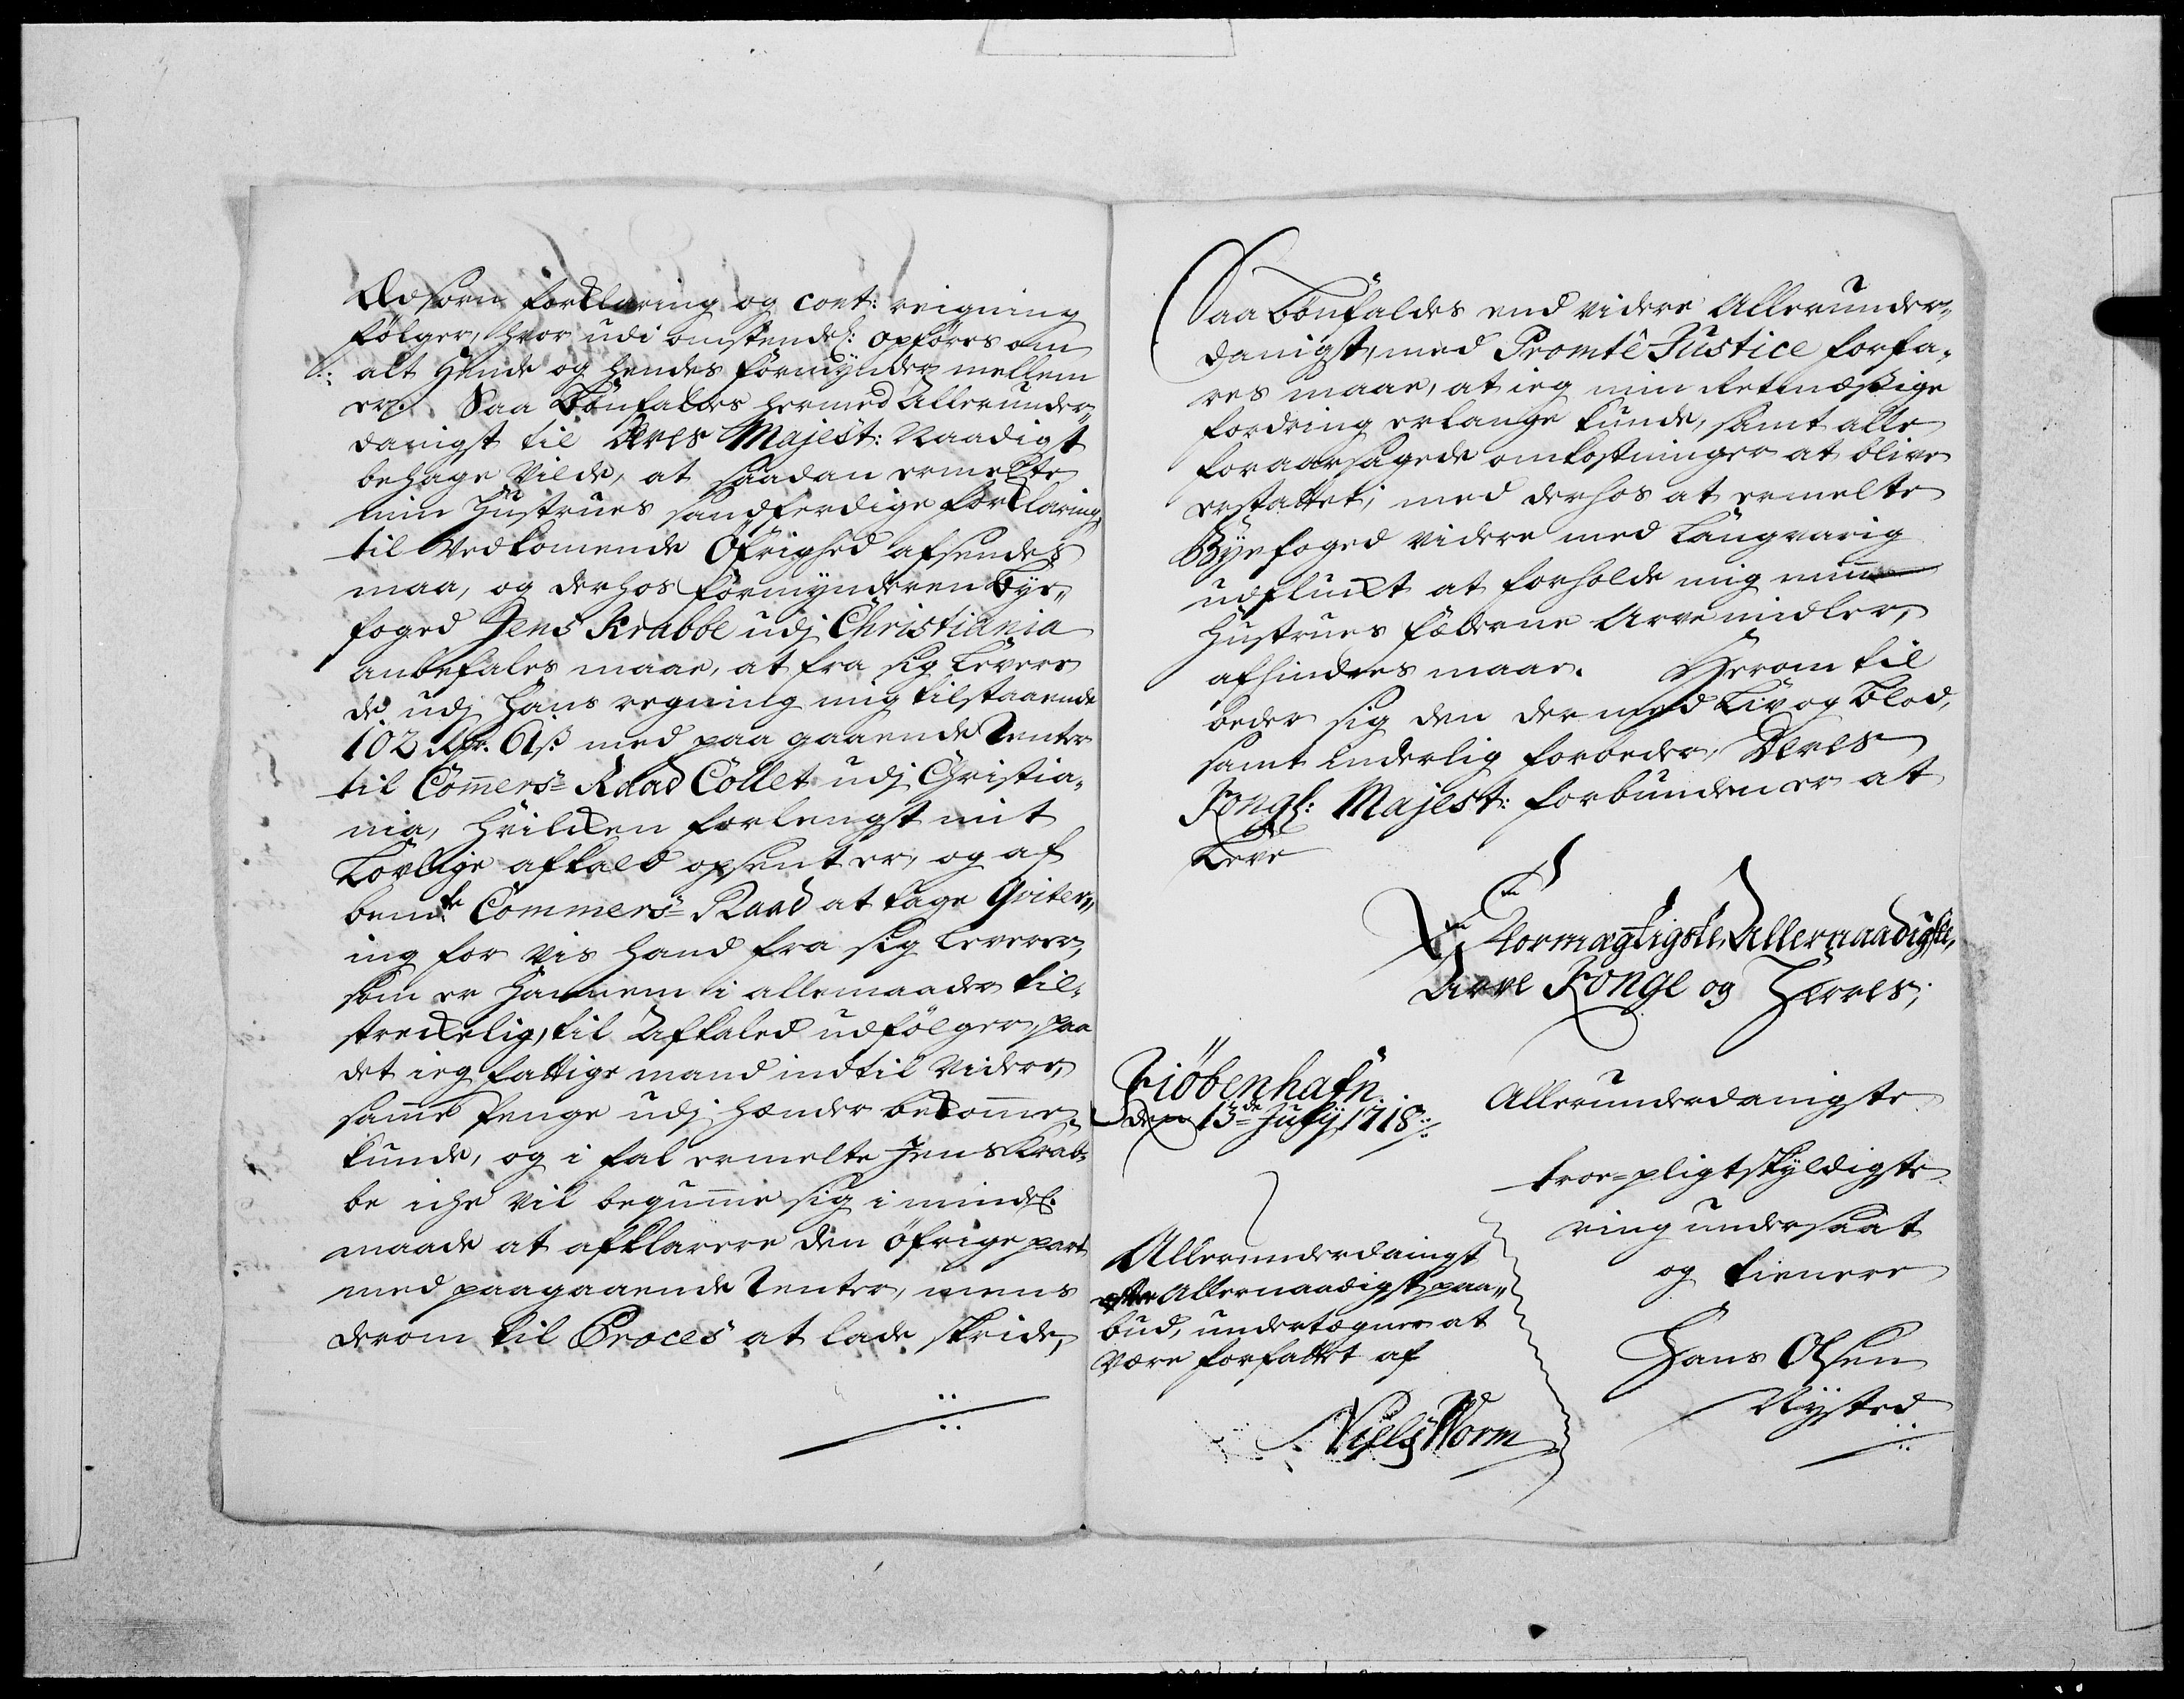 Edsorn forklaring og cont: reigning
følger, hvor udi omstendel: opføres om
alt Hende og hendes formynder mellem
er. Saa bönfaldes hermed Allerunder„
danigst til Deres Majest: Naadigst
behage Vilde, at saadan ermelte
min Hustrues sandferdige forklaring
til Vedkomende Öfrighed afsendes
maa, og derhos formynderen bye„
foged Jens Krabbe udj Christiania
anbefales maae, at fra sig levere
de udj Hans regning mig tilstaaende
102 Rdr. 6 ß med paa gaaende Renter
til Com̄ers= Raad Collet udj Christia„
nia, hvilcken forlengst mit
Lovlige afkald opsent er, og af
bemte Commers= Raad at tage Qviter„
ing for vis hand fra sig leverer,
som er Hannem i allemaader til„
streckelig, til Afkaled udfølger, paa
det ieg fattige mand indtil Videre,
samme Penge udj hænder bekomme
kunde, og i fal ermelte Jens Krab„
be iche vil beqvem̄e sig i mindel:
maade at afklarere den öfrige part
med paagaaende Renter, mens
derom til Proces at lade skride,
Saa bönfaldes end videre Allerunder„
danigst, med Promte Justice forfa„
res maae, at ieg min Retmæssige
fordring erlange kunde, samt alle
foraarsagede omkostninger at blive
erstattet; med derhos at ermelte
Byefoged videre med langvarig
udfluckt at forholde mig min
Hustrues fæderne Arve midler,
afhindres maae. Herom til
beder sig den der med Liv og blod,
samt inderlig forbeder, Deres
Kongl: Majest: forbunden er at
Leve
Stormægtigste, Allernaadigste,
Arve Konge og Herres;
Kiöbenhafn
den 13de Julij 1718
Allerunderdanigste
troe=pligtskyldigste
ring undersaat
og tienere
Hans Olsen
Nysted
Allerunderdanigst
efter Allernaadigst paa„
bud, undertegner at
være forfattet af
Niels Worm